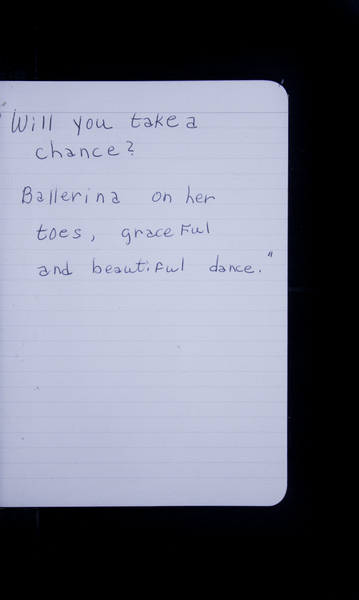 "Will you take a
chance?
Ballerina on her
toes, graceful
and beautiful dance."